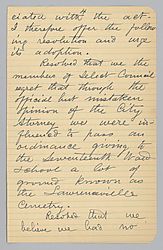 ciated with the act.
I therefore offer the follow
ing resolution and urge
its adoption.
Resolved that we
the members of Select Council
regret that through the
official but mistaken
opinion of the City
Attorney we were in-
fluenced to pass an
ordnance giving to
the Seventeenth Ward
school a lot of
ground known as
the Lawrenceville
Cemetry.
Resolved that we
believe we had no